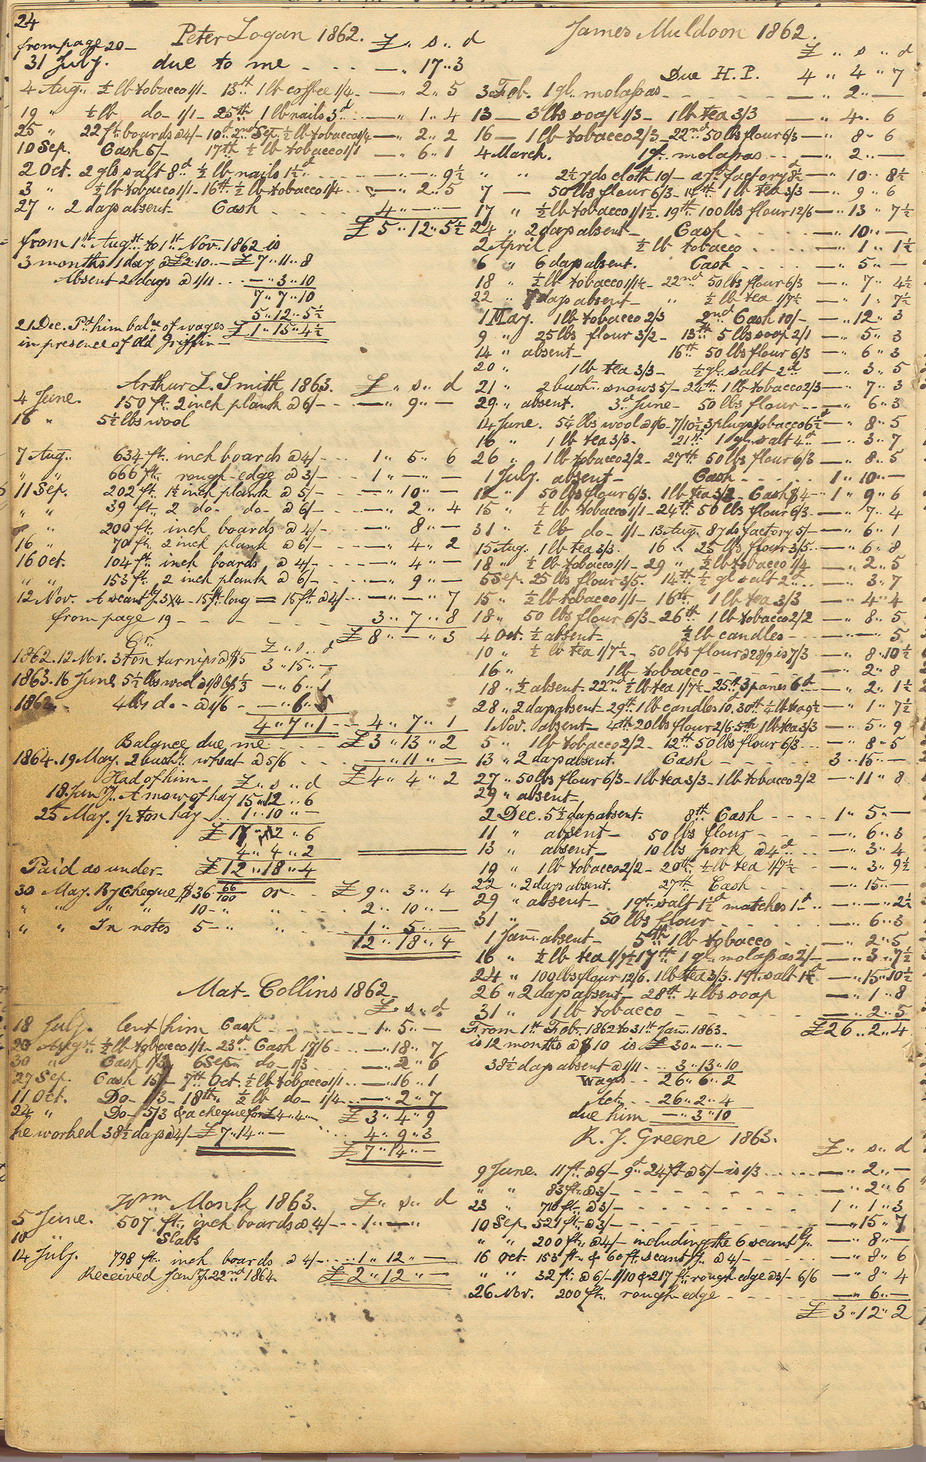 24
Peter Logan 1862.
from page 20 — £ „ s „ d
31 July. due to me - - - — „ 17 „ 3
4 Aug. ½ lb tobacco 1/1 - 13th 1 lb coffee 1/4 - — „ 2 „ 5
19 „ ½ lb do - 1/1 - 25th 1 lb nails 3d - — „ 1 „ 4
25 „ 22 ft boards @ 4/ - 10th 2nd Sep. ½ lb tobacco 1/4 - — „ 2 „ 2
10 Sep. Cash 5/ 17th ½ lb tobacco 1/1 — „ 6 „ 1
2 Oct. 2 gls salt 8d ½ lb nails 1½d - — „ — „ 9½
3 „ ½ lb tobacco 1/1 - 16th ½ lb tobacco 1/4 - — „ 2 „ 5
27 „ 2 days absent Cash - - - 4 „ — „ —
£ 5 „ 12 „ 5½
from 1st Augt. to 1st Nov. 1862 is
3 months 1 day @ £2 „ 10 — £ 7 „ 11 „ 8
Absent 2 days @ 1/11 - - — „ 3 „ 10
7 „ 7 „ 10
5 „ 12 „ 5½
21 Dec. Pd. him balce. of wages £ 1 „ 15 „ 4½
in presence of Old Griffin —
Arthur L. Smith 1863. £ „ s „ d
4 June. 150 ft. 2 inch plank @ 6/ - - — „ 9 „ —
16 „ 5½ lbs wool
7 Aug. 634 ft. inch boards @ 4/ - - 1 „ 5 „ 6
„ „ 666 ft. rough-edge @ 3/ - - 1 „ — „ —
11 Sep. 202 ft. 1½ inch plank @ 5/ - - — „ 10 „ —
„ „ 39 ft. 2 do - do - @ 6/ - - — „ 2 „ 4
„ „ 200 ft. inch boards @ 4/ - - — „ 8 „ —
16 „ 70 ft. 2 inch plank @ 6/ - - — „ 4 „ 2
16 Oct. 104 ft. inch boards @ 4/ - - — „ 4 „ —
„ „ 153 ft. 2 inch plank @ 6/ - - — „ 9 „ —
12 Nov. A scantg. 3x4 - 15 ft long = 15 ft @ 4/ - - — „ — „ 7
from page 19 - - - 3 „ 7 „ 8
£ 8 „ — „ 3
Cr. £ „ s „ d
1862. 12 Nov. 3 ton turnips @ $5 3 „ 15 „ —
1863. 16 June 5½ lbs wool — „ 6 „ 1
1862. 4 lbs do - @ 1/6 - - — „ 6 „
4 „ 7 „ 1 - - 4 „ 7 „ 1
Balance due me - - £ 3 „ 13 „ 2
1864. 19 May. 2 bush. wheat @ 5/6 - - — „ 11 „ —
Had of him - £ „ s „ d £ 4 „ 4 „ 2
18 Jany. A mow of hay 15 „ 12 „ 6
25 May. ½ ton hay 1 „ 10 „ —
£ 17 „ 2 „ 6
4 „ 4 „ 2
Paid as under - £ 12 „ 18 „ 4
30 May. By Cheque $36 66/100 or - £ 9 „ 3 „ 4
„ „ „ „ 10 - „ - - 2 „ 10 „ —
„ „ In notes 5 - „ - - 1 „ 5 „ —
12 „ 18 „ 4
Mat - Collins 1862.
£ „ s „ d
18 July. lent him Cash - - - 1 „ 5 „ —
23 Augt. ½ lb tobacco 1/1 - 23rd Cash 17/6 - - — „ 18 „ 7
30 „ Cash 1/3 6 Sep. do - 1/3 - - — „ 2 „ 6
27 Sep. Cash 15/ - 7th Oct. ½ lb tobacco 1/1 - - — „ 16 „ 1
11 Oct. Do - 1/3 - 18th ½ lb do - 1/4 - - — „ 2 „ 7
24 „ Do - 5/3 & a cheque for £4 „ 4 - £ 3 „ 4 „ 9
he worked 38½ days @ 4/ - £ 7 „ 14 „ — 4 „ 9 „ 3
£ 7 „ 14 „ —
Wm Monk 1863. £ „ s „ d
5 June. 507 ft. inch boards @ 4/ - - 1 „ — „ —
10 „ Slabs
14 July. 798 ft. inch boards @ 4/ - - 1 „ 12 „ —
Received Jany. 22nd 1864. £ 2 „ 12 „ —
James Muldoon 1862.
£ „ s „ d
Due H. P. 4 „ 4 „ 7
3 Feb. 1 gl. molasses - - - — „ 2 „ —
13 — 3 lbs soap 1/3 - 1 lb tea 3/3 — „ 4 „ 6
16 — 1 lb tobacco 2/3 - 22nd 50 lbs flour 6/3 — „ 8 „ 6
4 March. 1 gl. molasses - - — „ 2 „ —
„ „ 2½ yds cloth 10/ - a yd. factory 8½d — „ 10 „ 8½
7 — 50 lbs flour 6/3 - 14th 1 lb tea 3/3 — „ 9 „ 6
17 „ ½ lb tobacco 1/1½ - 19th 100 lbs flour 12/6 — „ 13 „ 7½
24 „ 2 days absent - Cash - - — „ 10 „ —
2 April ½ lb tobacco - - — „ 1 „ 1½
6 „ 6 days absent. Cash - - — „ 5 „ —
18 „ ½ lb tobacco 1/1½ - 22nd 50 lbs flour 6/3 — „ 7 „ 4½
22 „ days absent - „ ½ lb tea 1/7½ - — „ 1 „ 7½
1 May. 1 lb tobacco 2/3 2nd Cash 10/ - — „ 12 „ 3
9 „ 25 lbs flour 3/2 - 13th 5 lbs soap 2/1 — „ 5 „ 3
14 „ absent - 16th 50 lbs flour 6/3 — „ 6 „ 3
20 „ 1 lb tea 3/3 - ½ gl. salt 2d - — „ 3 „ 5
21 „ 2 bush. snows 5/ - 24th 1 lb tobacco 2/3 — „ 7 „ 3
29 „ absent. 3rd June - 50 lbs flour - - — „ 6 „ 3
14 June. 5¼ lbs wool @ 1/6 - 7/10½ 3 plugs tobacco 6½d — „ 8 „ 5
16 „ 1 lb tea 3/3. 21st 1 gl. salt 4d - — „ 3 „ 7
26 „ 1 lb tobacco 2/2 - 27th 50 lbs flour 6/3 — „ 8 „ 5
1 July. absent - Cash - - - 1 „ 10 „ —
12 „ 50 lbs flour 6/3. 1 lb tea 3/3 - Cash $4 - 1 „ 9 „ 6
15 „ ½ lb tobacco 1/1 - 24th 50 lbs flour 6/3 - — „ 7 „ 4
31 „ ½ lb do - 1/1 - 13 Aug. 8 yds factory 5/ - — „ 6 „ 1
15 Aug. 1 lb tea 3/3. 16 „ 25 lbs flour 3/5 - - — „ 6 „ 8
18 „ ½ lb tobacco 1/1 - 29 „ ½ lb tobacco 1/4 - - — „ 2 „ 5
5 Sep. 25 lbs flour 3/5. 14th ½ gl salt 2d - - — „ 3 „ 7
15 „ ½ lb tobacco 1/1 - 16th 1 lb tea 3/3 - — „ 4 „ 4
18 „ 50 lbs flour 6/3 - 26th 1 lb tobacco 2/2 — „ 8 „ 5
4 Oct. ½ absent - ½ lb candles - - — „ — „ 5
10 „ ½ lb tea 1/7½ - 50 lbs flour @ 2 8/9 is 7/3 — „ 8 „ 10½
16 „ 1 lb tobacco - - - — „ 2 „ 8
18 „ ½ absent - 22nd ½ lb tea 1/7½ - 25th 3 panes 6d - — „ 2 „ 1½
28 „ 2 days absent 29th 1 lb candles 10. 30th ½ lb tea
1 Nov. absent - 4th 20 lbs flour 2/6 - 5th 1 lb tea 3/3 - — „ 5 „ 9
5 „ 1 lb tobacco 2/2 - 12th 50 lbs flour 6/3 - - — „ 8 „ 5
13 „ 2 days absent. Cash - - 3 „ 15 „ —
27 „ 50 lbs flour 6/3 - 1 lb tea 3/3 - 1 lb tobacco 2/2 - — „ 11 „ 8
29 „ absent -
2 Dec. 5½ days absent. 8th Cash - - - 1 „ 5 „ —
11 „ absent - 50 lbs flour - - — „ 6 „ 3
13 „ absent - 10 lbs pork @ 4d - - — „ 3 „ 4
19 „ 1 lb tobacco 2/2 - 20th ½ lb tea 1/7½ - — „ 3 „ 9½
22 „ 2 days absent. 27th Cash - - — „ 15 „ —
29 „ absent - 1 gl. salt 1½d matches 1d - - — „ — „ 2½
31 „ 50 lbs flour - - - — „ 6 „ 3
1 Jan. absent - 5th 1 lb tobacco - - — „ 2 „ 5
16 „ ½ lb tea 1/7½ 17th 1 gl. molasses 2/ - — „ 3 „ 7½
24 „ 100 lbs flour 12/6. 1 lb tea 3/3. 1 gl. salt 1½d — „ 15 „ 10½
26 „ 2 days absent - 28th 4 lbs soap - — „ 1 „ 8
31 „ 1 lb tobacco - - - — „ 2 „ 5
From 1st Feb. 1862 to 31st Jan. 1863. £ 26 „ 2 „ 4
is 12 months @ $10 is £ 30 „ — „ —
38½ days absent @ 1/11 - - 3 „ 13 „ 10
Wages - 26 „ 6 „ 2
Act. - - 26 „ 2 „ 4
due him - — „ 3 „ 10
R. J. Greene 1863.
£ „ s „ d
9 June. 11 ft @ 6/ - 9d - 24 ft @ 5/ - is 1/3 - - - — „ 2 „ —
„ „ 83 ft. @ 3/ - - - - — „ 2 „ 6
23 „ 710 ft. @ 3/ - - - - 1 „ 1 „ 3
10 Sep. 521 ft. @ 3/ - - - - — „ 15 „ 7
„ „ 200 ft. @ 4/ - including the 6 scantg. — „ 8 „ —
16 Oct. 153 ft. & 60 ft. scantg. @ 4/ - - — „ 8 „ 6
„ „ 32 ft. @ 6/ - 1/10 & 217 ft. rough edge @ 3/ - 6/6 — „ 8 „ 4
26 Nov. 200 ft. rough-edge - - - — „ 6 „ —
£ 3 „ 12 „ 2